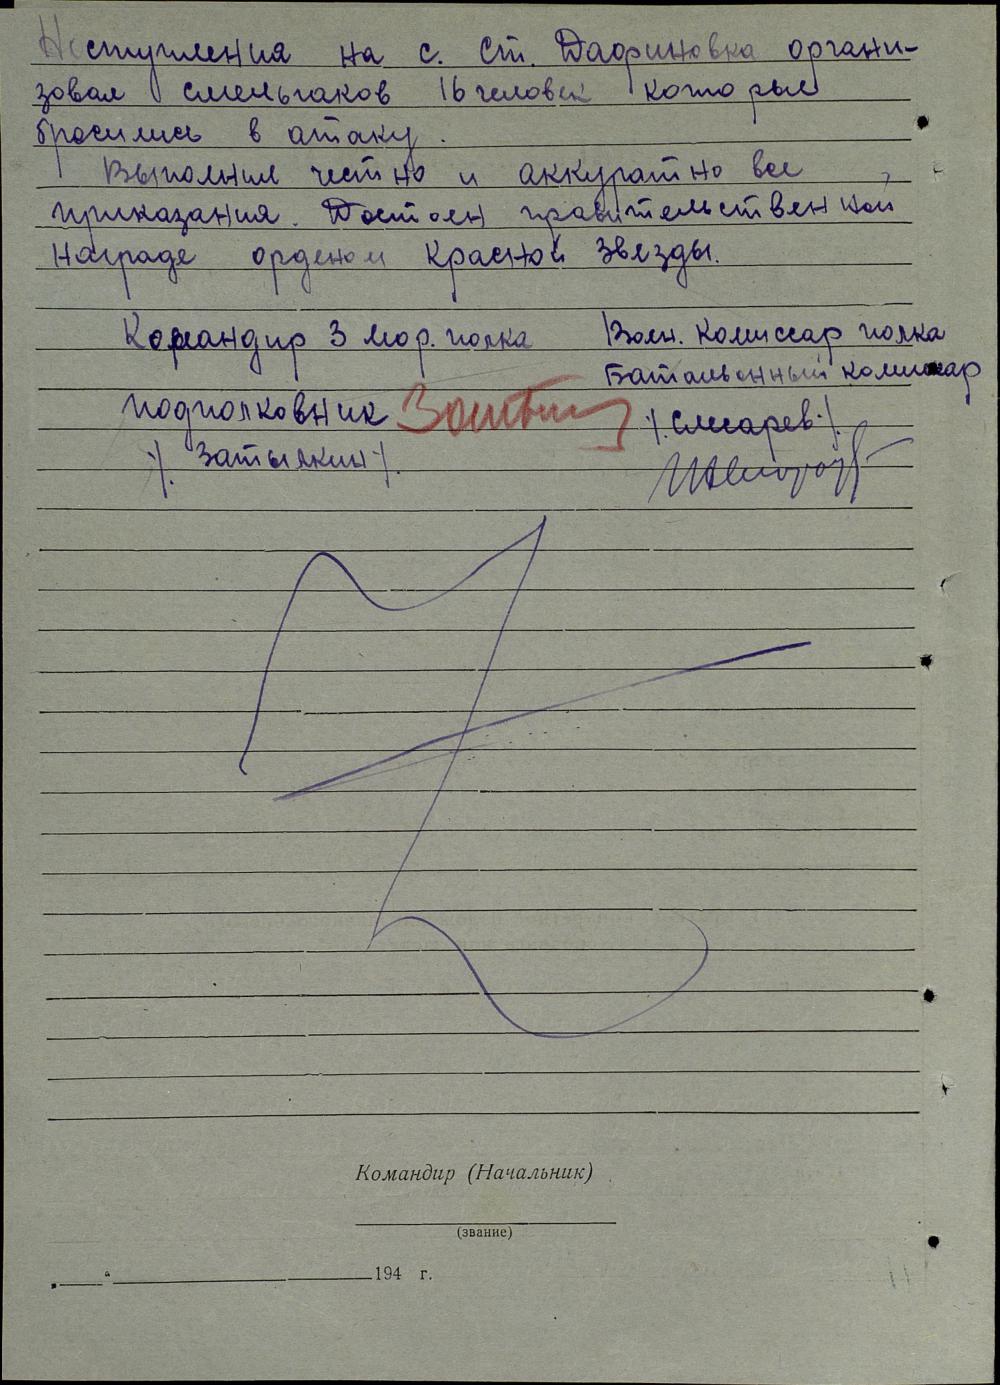 Наступления на с. Ст. Дафиновка органи-
зовал смельчаков 16 человек которые
бросились в атаку.
Выполнил честно и аккуратно все
приказания. Достоен правительственной
награде орденом Красной Звезды.
Командир 3 мор. полка Воен. Комиссар полка
Батальонный комиссар
подполковник /. Слесарев ./.
/. Затылкин /.
Командир (Начальник)
(звание)
„ “ 194 г.